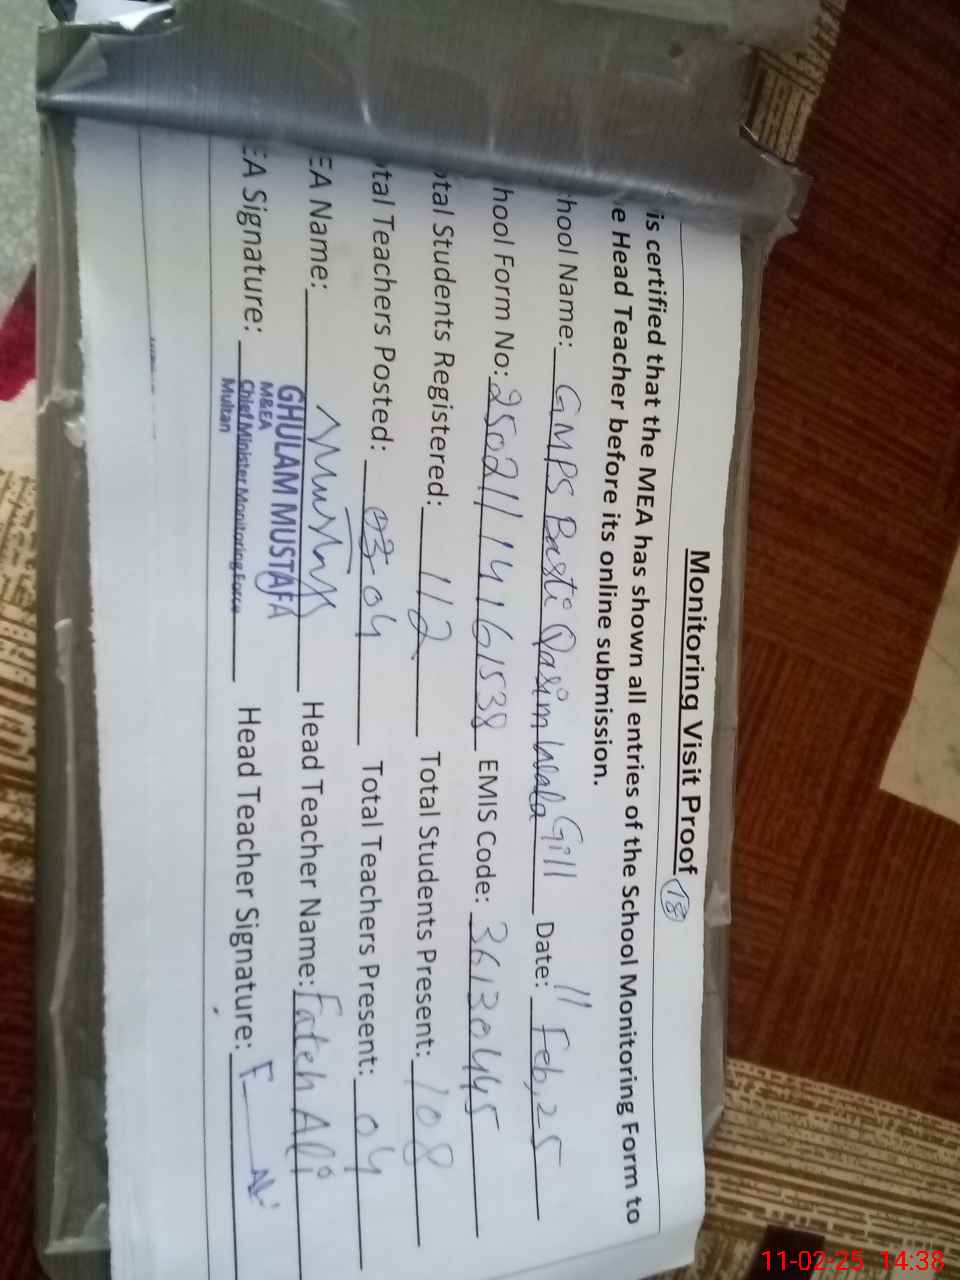 Monitoring Visit Proof 18
is certified that the MEA has shown all entries of the School Monitoring Form to
e Head Teacher before its online submission.
hool Name: GMPS Basti Qasim Wala Gill Date: 11 Feb, 25
hool Form No: 25021114161538 EMIS Code: 36130445
otal Students Registered: 112 Total Students Present: 108
tal Teachers Posted: 04 Total Teachers Present: 04
EA Name: Head Teacher Name: Fateh Ali
GHULAM MUSTAFA
M&EA
EA Signature: Chief Minister Monitoring Force Head Teacher Signature: F Ali
Multan
11-02-25 14:38